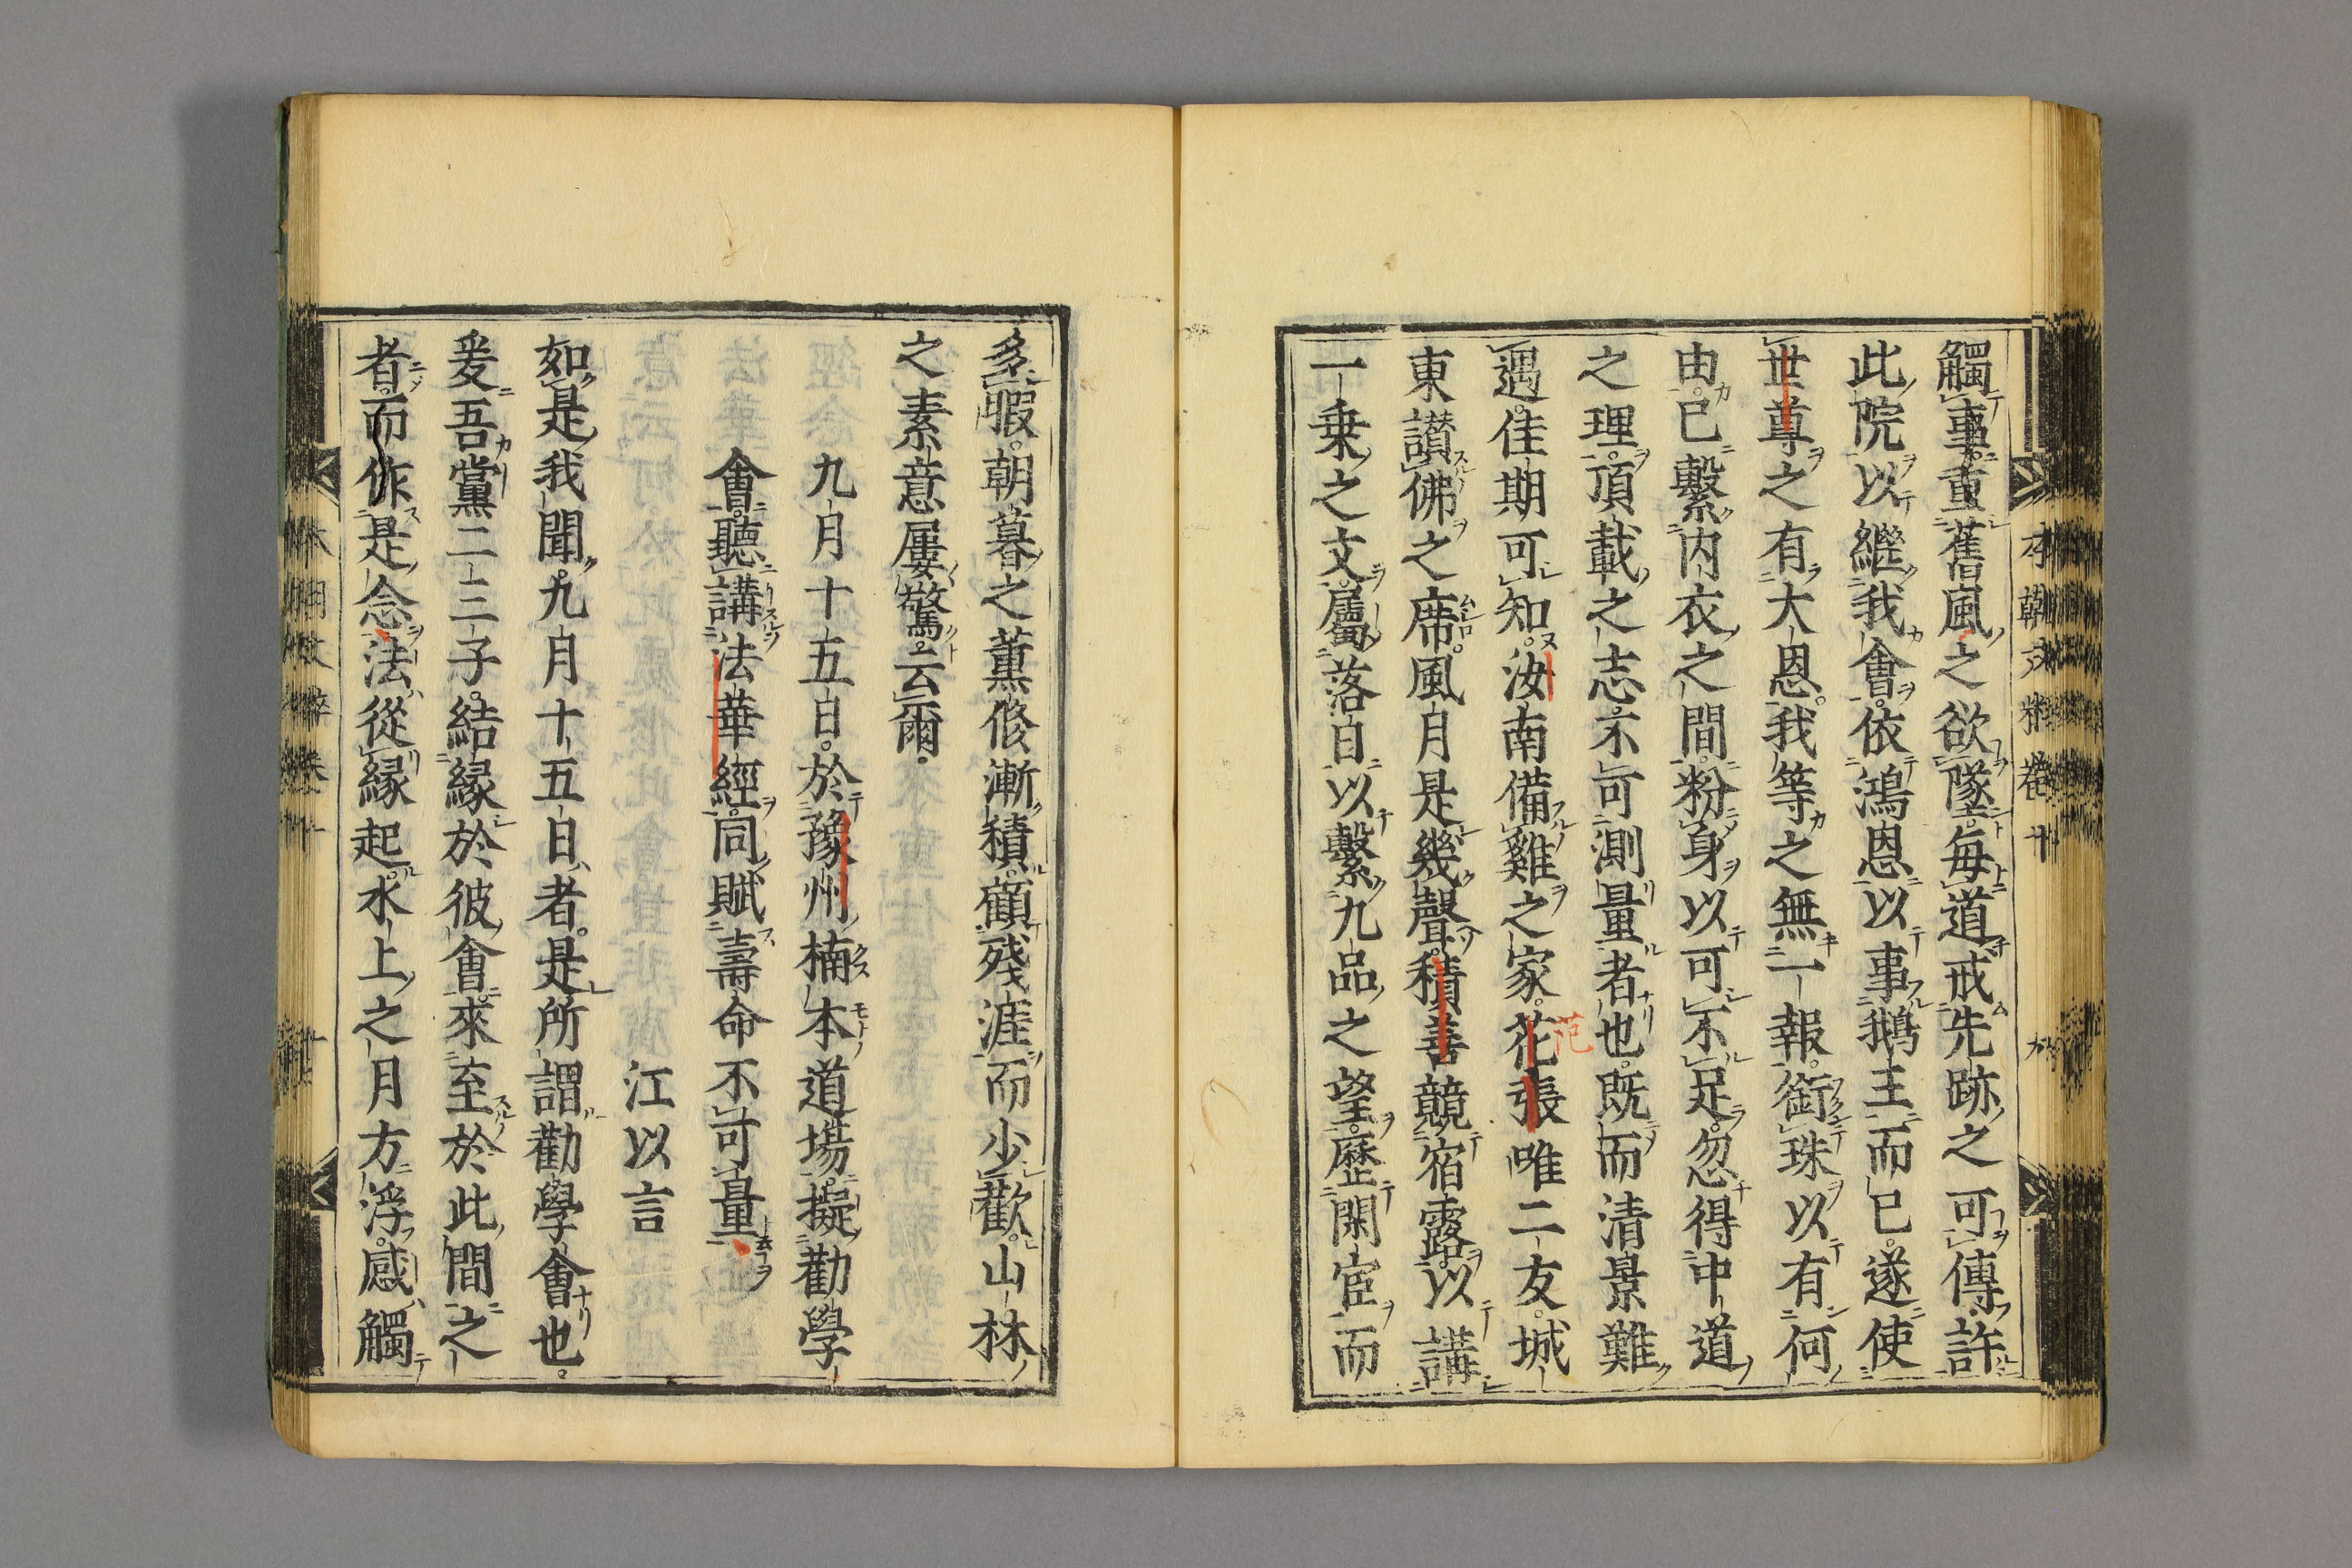 觸事重舊風之欲墜毎道戒先跡之可傳許
此院以繼我會依鴻恩以事鵝王而已遂使
世尊之有大恩我等之無一報銜珠以有何
由已繫内衣之間粉身以可不足忽得中道
之理頂載之志不可測量者也既而清景難
遇佳期可知汝南備雞之家花張唯二友城
范
東讃佛之席風月是幾聲積善競宿露以講
一乗之文屬落日以繫九品之望歴閑宦而
多暇朝暮之薫修漸積顧殘涯而少歡山林
之素意屢驚云爾
九月十五日於豫州楠本道場擬勸學
會聽講法華經同賦壽命不可量
江以言
如是我聞九月十五日者是所謂勸學會也
爰吾黨二三子結緣於彼會來至於此間之
者而作是念法從緣起水上之月方浮感觸